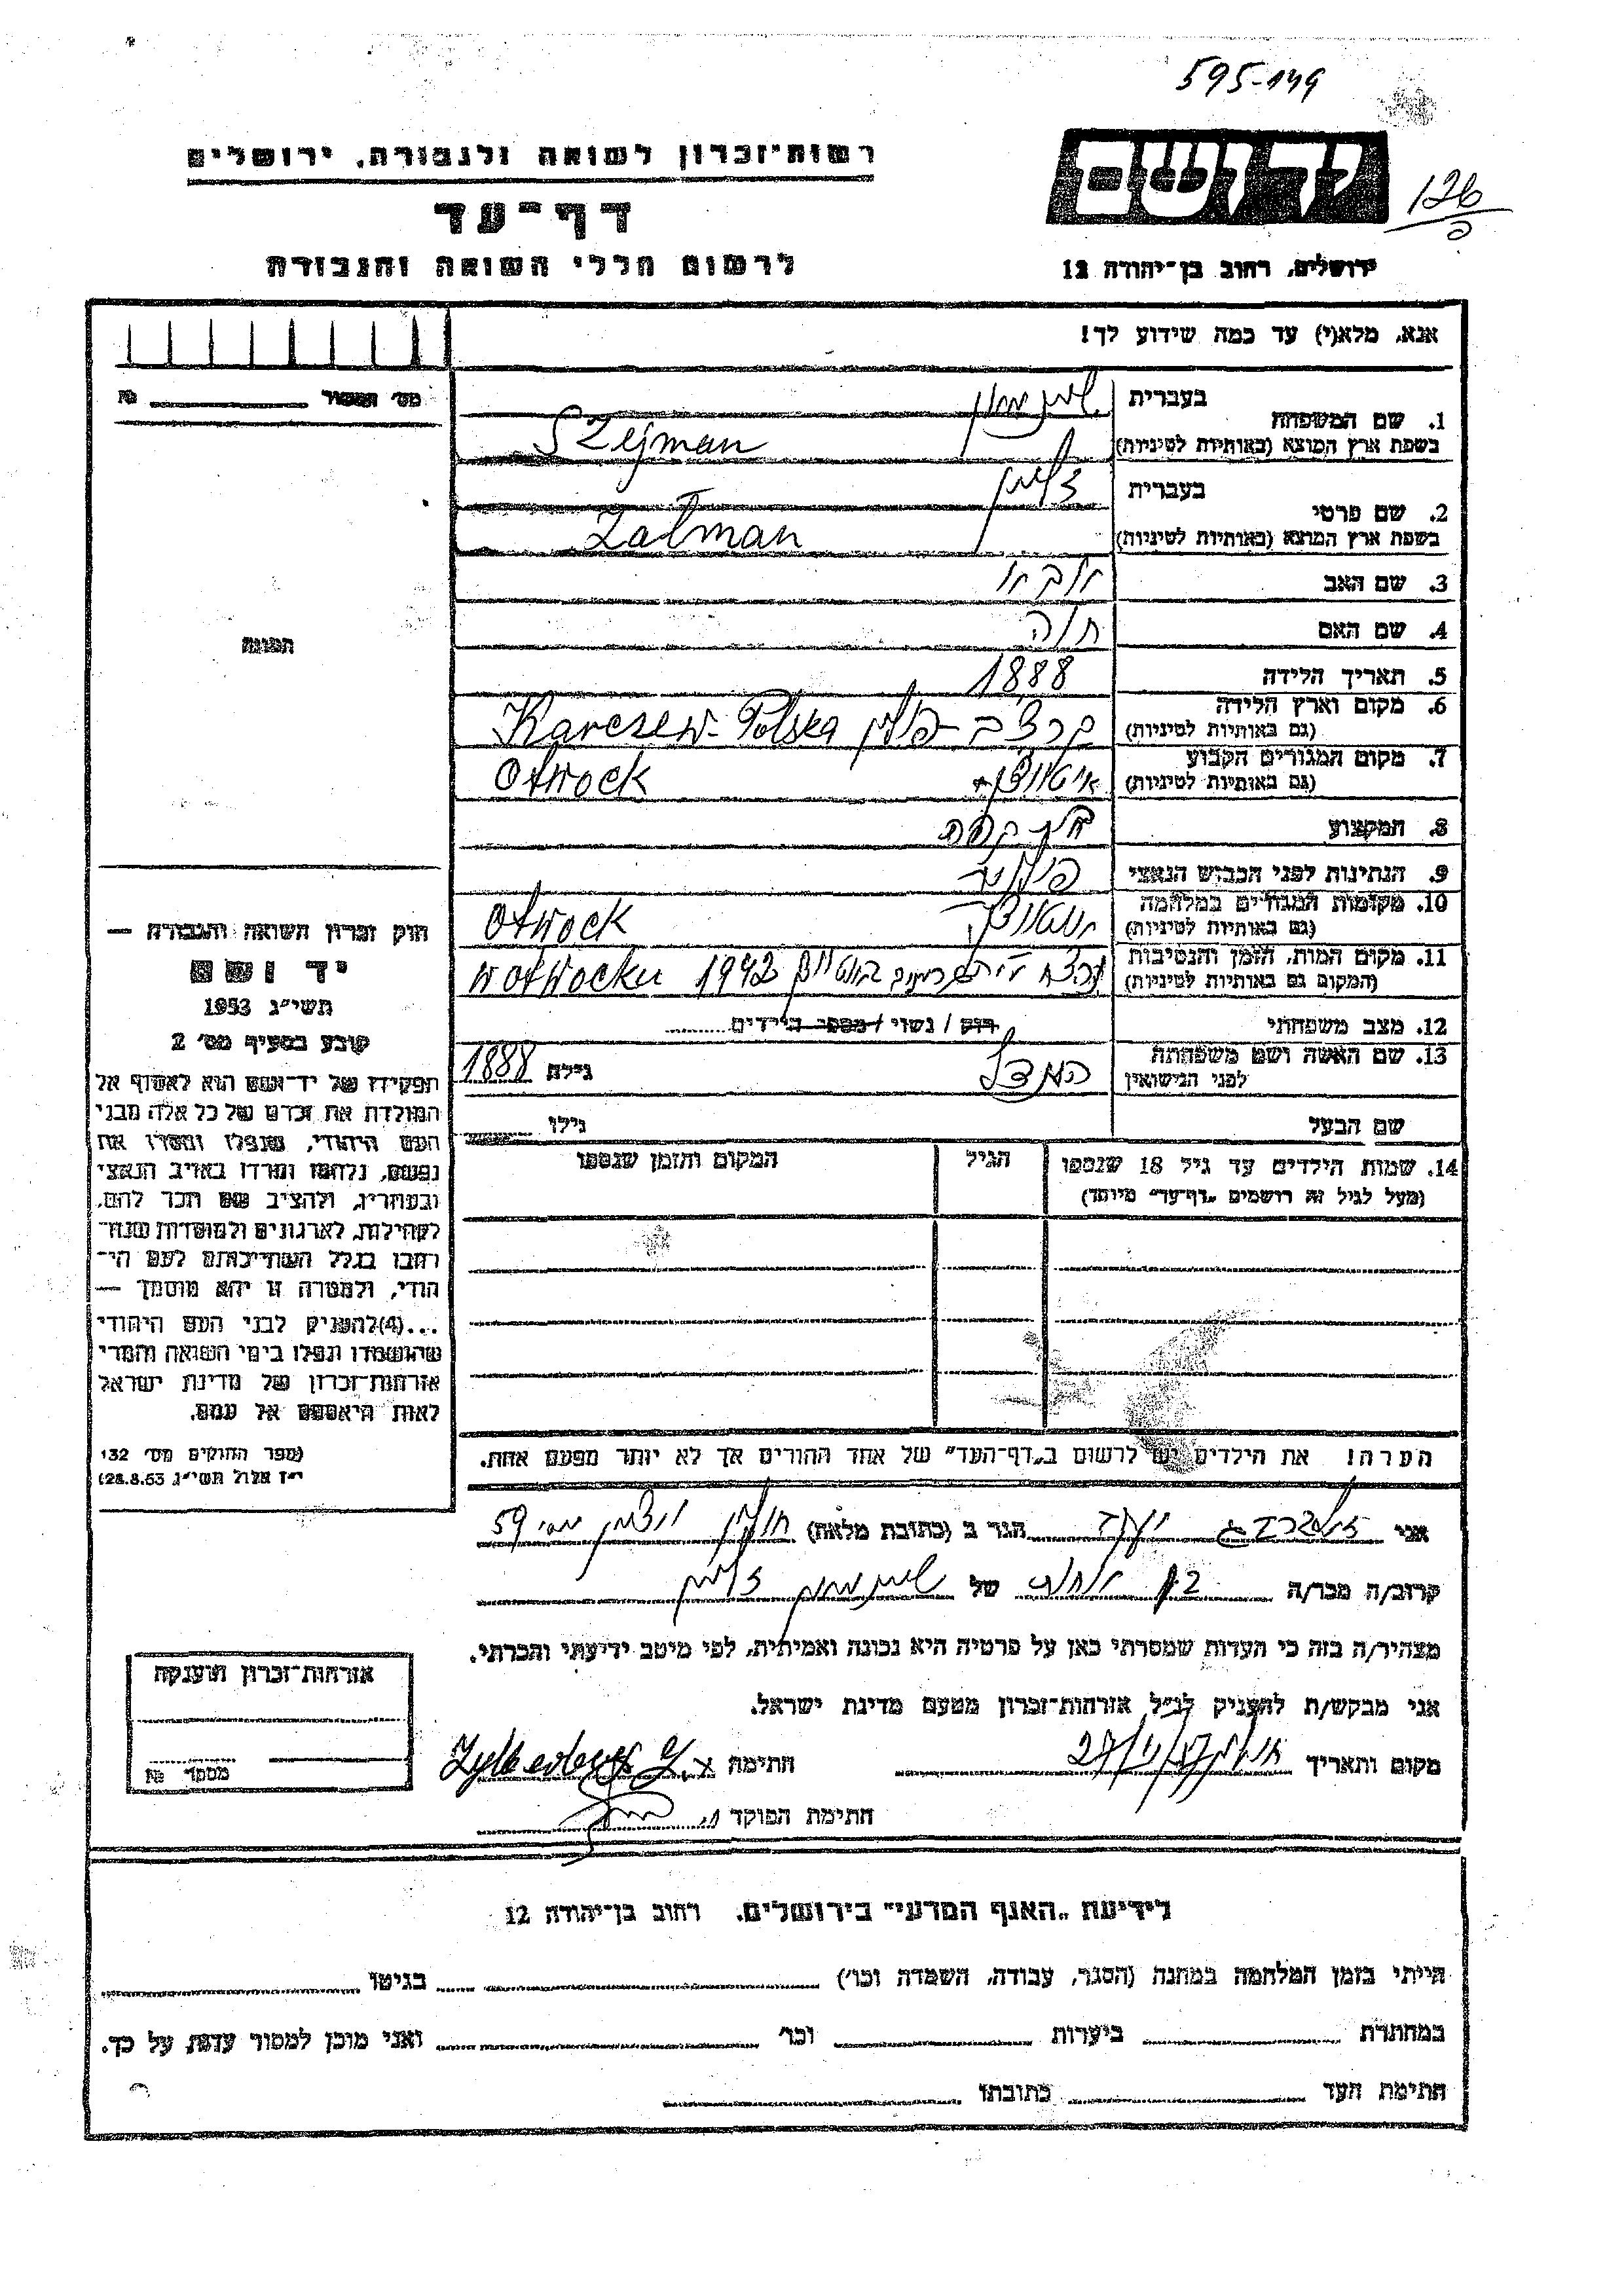 595-149
רשות־זכרון לשואה ולגבורה, ירושלים
יד ושם
126
דף־עד
לרשום חללי השואה והגבורה
ירושלים, רחוב בן־יהודה 12
אנא, מלא(י) עד כמה שידוע לך!
מס׳ №
1. שם המשפחה בעברית
בשפת ארץ המוצא (באותיות לטיניות) Szejman
2. שם פרטי בעברית זלמן
בשפת ארץ המוצא (באותיות לטיניות) Zalman
3. שם האב
4. שם האם חוה
5. תאריך הלידה 1888
6. מקום וארץ הלידה
(גם באותיות לטיניות) פולין Karczew-Polska
7. מקום המגורים הקבוע
(גם באותיות לטיניות) Otwock
8. המקצוע
9. הנתינות לפני הכבוש הנאצי
10. מקומות המגורים במלחמה
(גם באותיות לטיניות) Otwock
11. מקום המות, הזמן והנסיבות
(המקום גם באותיות לטיניות) 1942 w otwocku
12. מצב משפחתי רוק / נשוי / מספר הילדים
13. שם האשה ושם משפחתה
לפני הנישואין גילה 1888
שם הבעל גילו
14. שמות הילדים עד גיל 18 שנספו הגיל המקום והזמן שנספו
(מעל לגיל זה רושמים „דף־עד" מיוחד)
הערה! את הילדים יש לרשום ב„דף־העד" של אחד ההורים אך לא יותר מפעם אחת.
התמונה
חוק זכרון השואה והגבורה —
יד ושם
תשי״ג 1953
קובע בסעיף מס׳ 2
תפקידו של יד־ושם הוא לאסוף אל
המולדת את זכרם של כל אלה מבני
העם היהודי, שנפלו ומסרו את
נפשם, נלחמו ומרדו באויב הנאצי
ובעוזריו, ולהציב שם וזכר להם,
לקהילות, לארגונים ולמוסדות שנח־
רבו בגלל השתייכותם לעם הי־
הודי, ולמטרה זו יהא מוסמך —
...(4)להעניק לבני העם היהודי
שהושמדו ונפלו בימי השואה והמרי
אזרחות־זכרון של מדינת ישראל
לאות היאספם אל עמם.
(ספר החוקים מס׳ 132
י״ז אלול תשי״ג 28.8.53)
אני זילברברג הגר ב (כתובת מלאה) חולון 59
קרוב/ה מכר/ה של זלמן
מצהיר/ה בזה כי העדות שמסרתי כאן על פרטיה היא נכונה ואמיתית, לפי מיטב ידיעתי והכרתי.
אני מבקש/ת להעניק לנ״ל אזרחות־זכרון מטעם מדינת ישראל.
מקום ותאריך חולון חתימה Zylberberg
חתימת הפוקד
אזרחות־זכרון הוענקה
מספר №
לידיעת „האגף המדעי" בירושלים, רחוב בן־יהודה 12
הייתי בזמן המלחמה במחנה (הסגר, עבודה, השמדה וכו׳) בגיטו
במחתרת ביערות וכו׳ ואני מוכן למסור עדות על כך.
חתימת העד כתובתו